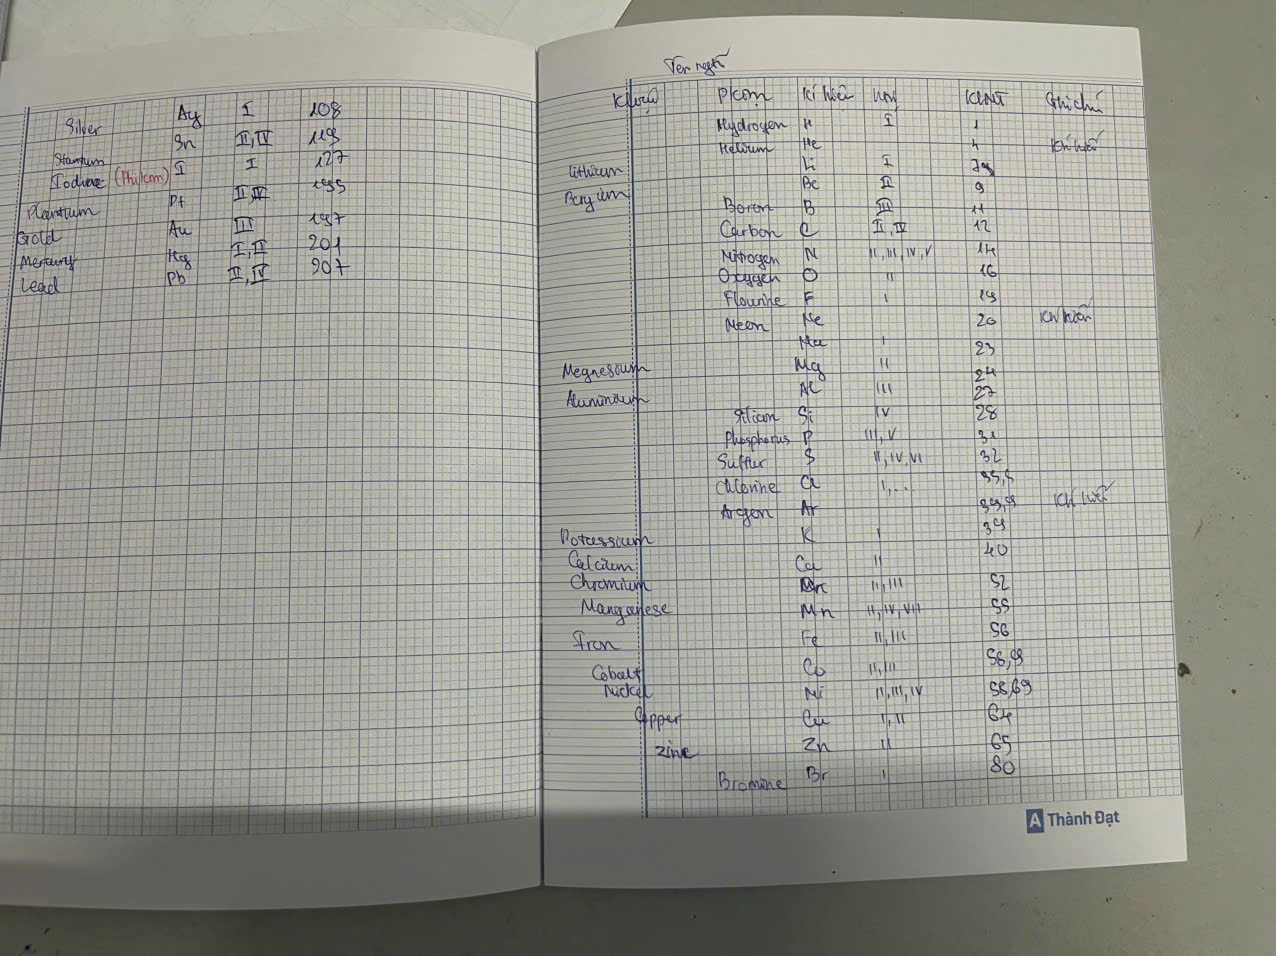 Silver Ag I 108
Stantum Sn II, IV 119
Iodine (Phi kim) I I 127
Plantium Pt II, IV 195
Gold Au III 197
Mercury Hg I, II 201
Lead Pb II, IV 207
Tên nguyên tố
K loại P kim Kí hiệu KLNT Ghi chú
Hydrogen H I 1
Helium He 4 Khí hiếm
Lithium Li I 7
Beryium Be II 9
Boron B III 11
Carbon C II, IV 12
Nitrogen N II, III, IV, V 14
Oxygen O II 16
Flourine F I 19
Neon Ne 20 Khí hiếm
Na I 23
Megnesium Mg II 24
Aluminium Al III 27
Silicon Si IV 28
Phosphorus P III, V 31
Sulfur S II, IV, VI 32
Chlorine Cl I, ... 35,5
Argon Ar 39,9 Khí hiếm
Potassium K I 39
Calcium Ca II 40
Chromium II, III 52
Manganese Mn II, IV, VII 55
Iron Fe II, III 56
Cobalt Co II, III 58,93
Nickel Ni II, III, IV 58,69
Copper Cu I, II 64
Zinc Zn II 65
Bromine Br I 80
A Thành Đạt